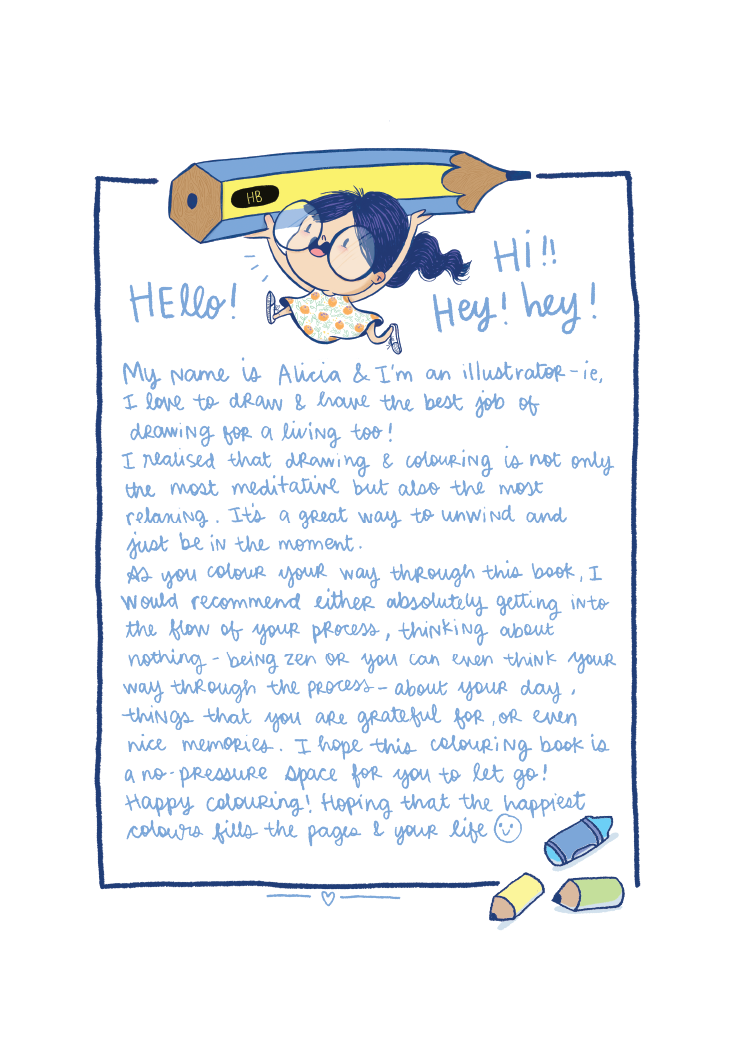 HB
Hi!!
Hello!
Hey! hey!
My name is Alicia & I'm an illustrator - ie,
I love to draw & have the best job of
drawing for a living too!
I realised that drawing & colouring is not only
the most meditative but also the most
relaxing. It's a great way to unwind and
just be in the moment.
As you colour your way through this book, I
would recommend either absolutely getting into
the flow of your process, thinking about
nothing - being zen or you can even think your
way through the process - about your day,
things that you are grateful for, or even
nice memories. I hope this colouring book is
a no-pressure space for you to let go!
Happy colouring! Hoping that the happiest
colours fills the pages & your life